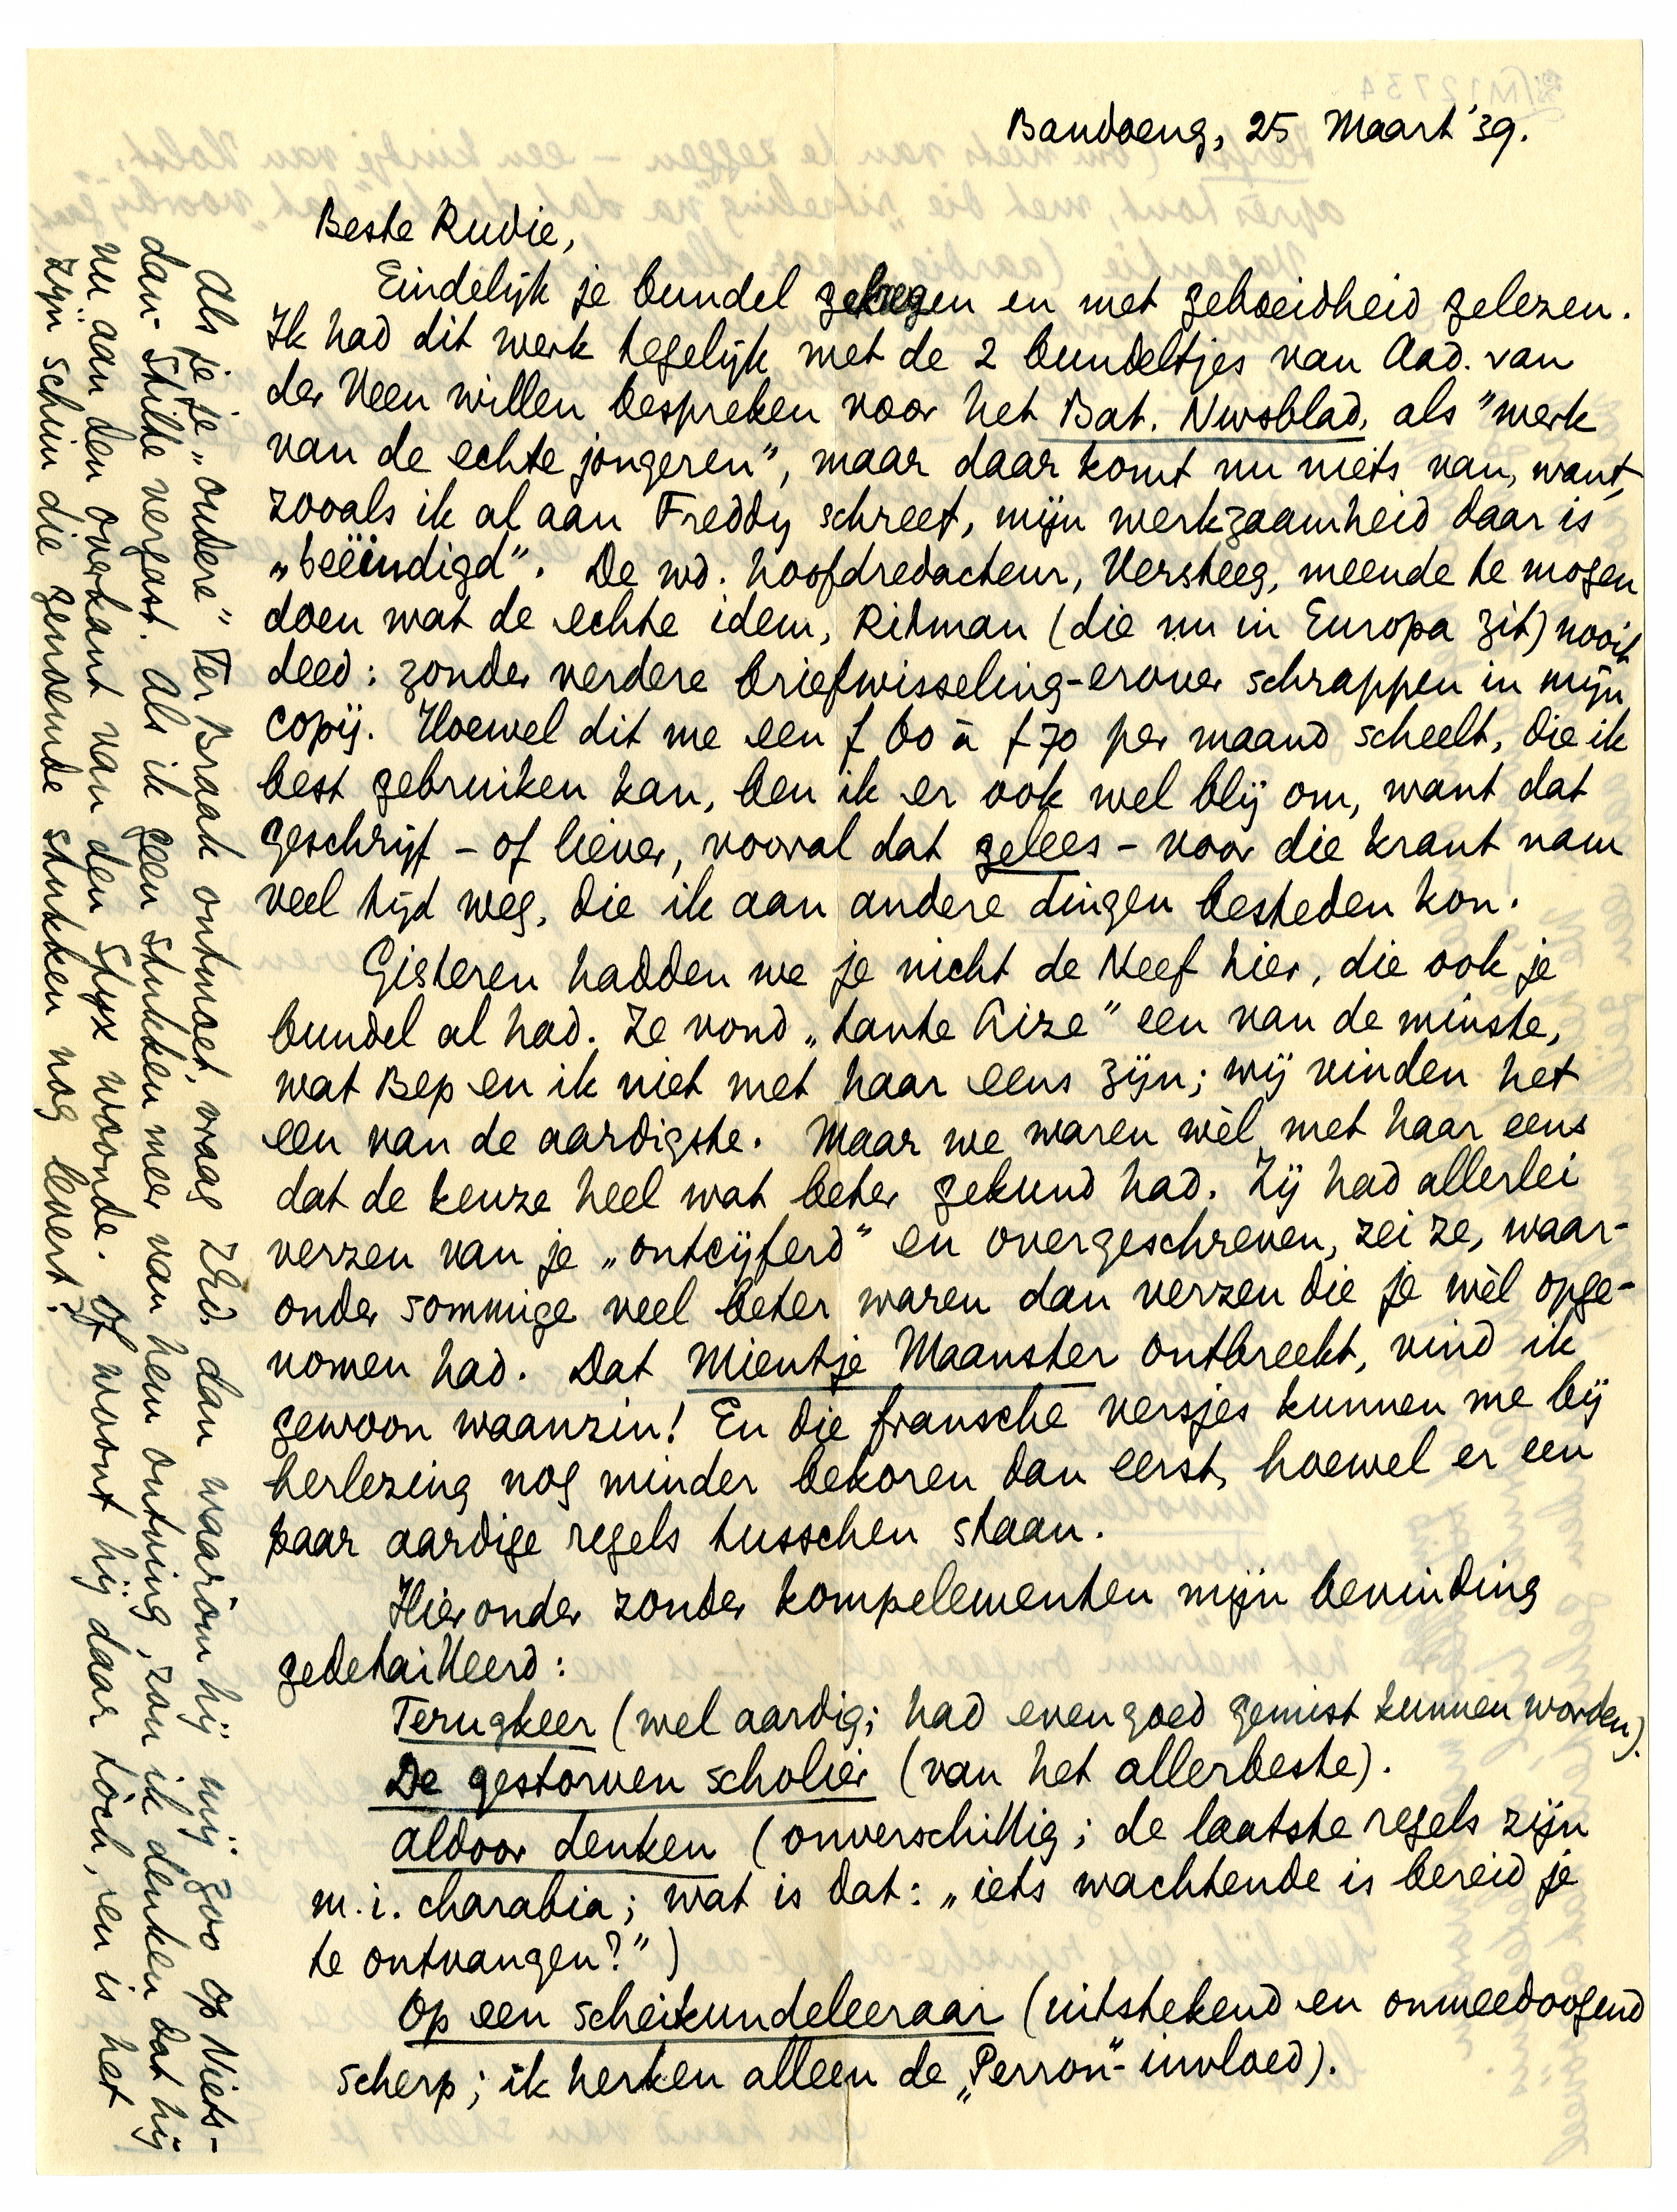 Bandoeng, 25 Maart '39.
Beste Rudie,
Eindelijk je bundel gekregen en met geboeidheid gelezen.
Ik had dit werk tegelijk met de 2 bundeltjes van Aad. van
der Veen willen bespreken voor het Bat. Nwsblad, als "werk
van de echte jongeren", maar daar komt nu niets van, want,
zooals ik al aan Freddy schreef, mijn werkzaamheid daar is
„beëindigd". De wd. hoofdredacteur, Versteeg, meende te mogen
doen wat de echte idem, Ritman (die nu in Europa zit) nooit
deed: zonder verdere briefwisseling-erover schrappen in mijn
copij. Hoewel dit me een f 60 à f 70 per maand scheelt, die ik
best gebruiken kan, ben ik er ook wel blij om, want dat
geschrijf - of liever, vooral dat gelees - voor die krant nam
veel tijd weg, die ik aan andere dingen besteden kon.
Gisteren hadden we je nicht de Neef hier, die ook je
bundel al had. Ze vond „tante Aize" een van de minste,
wat Bep en ik niet met haar eens zijn; wij vinden het
een van de aardigste. Maar we waren wèl met haar eens
dat de keuze heel wat beter gekund had. Zij had allerlei
verzen van je „ontcijferd" en overgeschreven, zei ze, waar-
onder sommige veel beter waren dan verzen die je wèl opge-
nomen had. Dat Mientje Maanster ontbreekt, vind ik
gewoon waanzin! En die fransche versjes kunnen me bij
herlezing nog minder bekoren dan eerst, hoewel er een
paar aardige regels tusschen staan.
Hieronder zonder kompelementen mijn bevinding
gedetailleerd:
Terugkeer (wel aardig; had even goed gemist kunnen worden).
De gestorven scholier (van het allerbeste).
Aldoor denken (onverschillig; de laatste regels zijn
m.i. charabia; wat is dat: „iets wachtende is bereid je
te ontvangen?")
Op een scheikundeleeraar (uitstekend en onmeedoogend
scherp; ik herken alleen de „Perron"-invloed).
Als je je „oudere" Ter Braak ontmoet, vraag ZEd. dan waaròm hij mij zoo op Niets-
dan-Stilte vergast. Als ik geen stukken meer van hem ontving, zou ik denken dat hij
nu aan den overkant van den Styx woonde. Of woont hij daar tòch, en is het
zijn schim die zendende stukken nog levert?